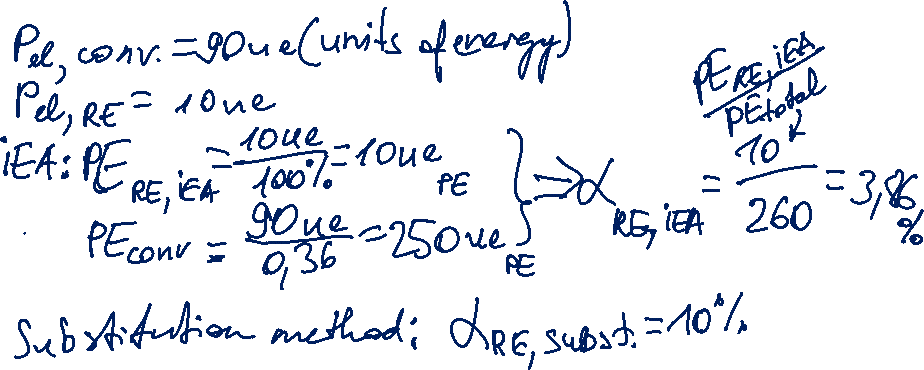 Pel, conv. = 90ue (units of energy)
Pel, RE = 10ue
iEA: PE RE, iEA = 10ue / 100% = 10ue PE
PE conv = 90ue / 0,36 = 250ue PE
} ⇒ α RE, iEA = PE RE, iEA / PE total = 10 / 260 = 3,86 %
Substitution method: α RE, subst. = 10%